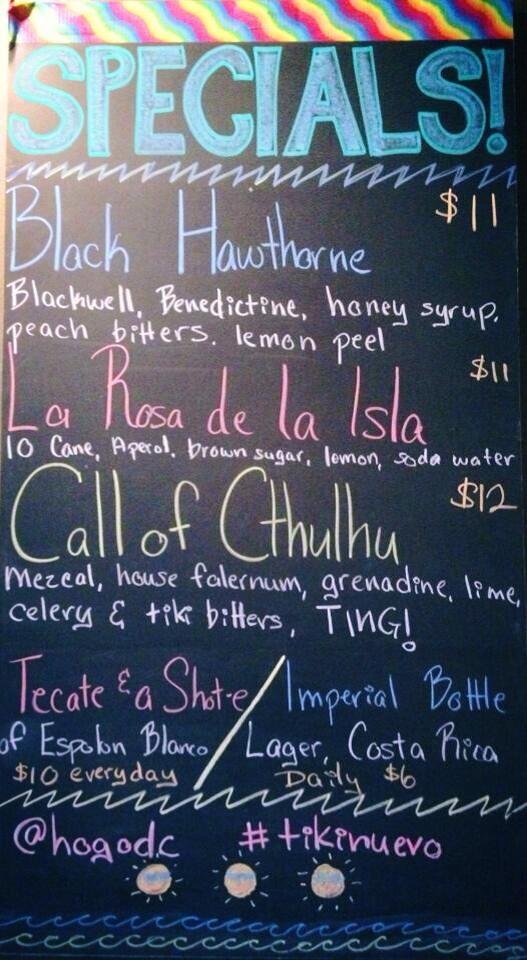 SPECIALS!
Black Hawthorne $11
Blackwell, Benedictine, honey syrup,
peach bitters. lemon peel
$11
La Rosa de la Isla
10 Cane, Aperol, brown sugar, lemon, soda water
Call of Cthulhu $12
Mezcal, house falernum, grenadine, lime,
celery & tiki bitters, TING!
Tecate & a Shot-e
of Espolon Blanco
$10 everyday
Imperial Bottle
Lager, Costa Rica
Daily $6
@hogodc #tikinuevo